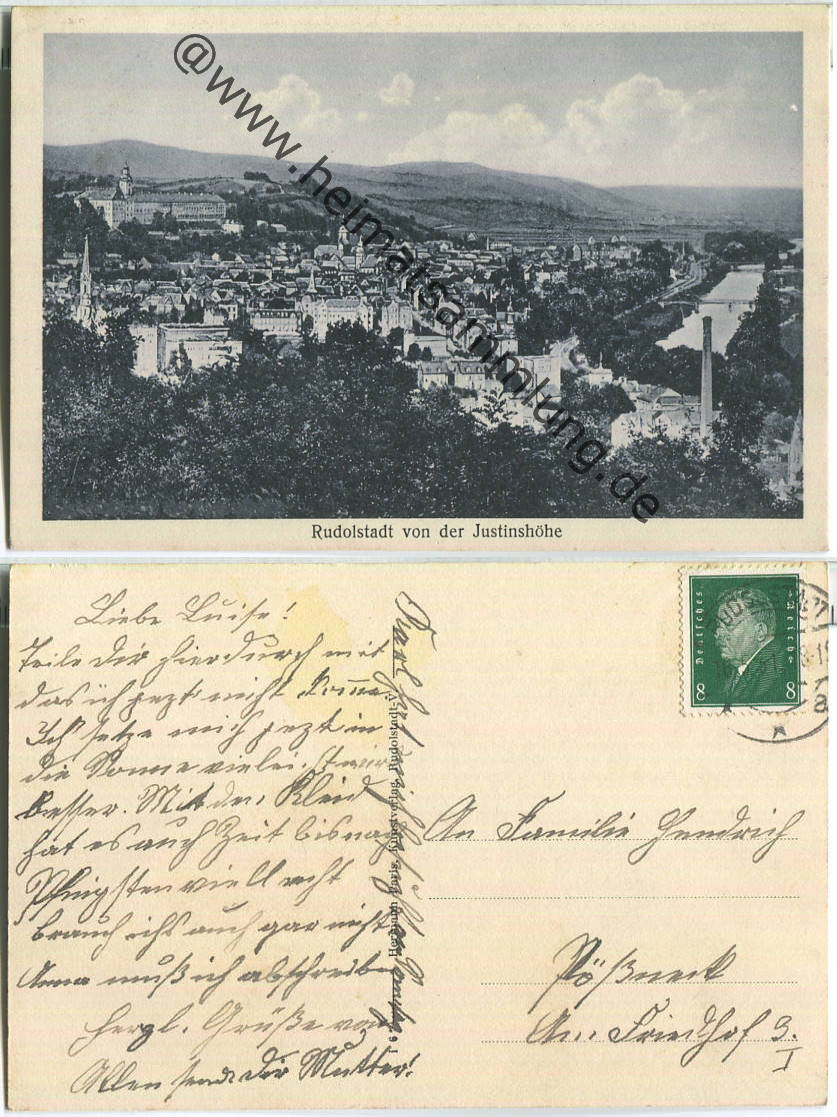 @www.heimatsammlung.de
Rudolstadt von der Justinshöhe
Liebe Luise!
Teile Dir hierdurch mit
das ich jezt nicht komme.
Ich setze mich jezt in
die Sonne vieleicht wird
besser. Mit dem Kleid
hat es auch Zeit bis nach
Pfingsten viell recht
brauch ichs auch gar nicht
Anna muß ich abschreiben
herzl. Grüße von
Allen send. Dir Mutter!
Rudolstadt
Deutsches Reich
8 8
An Familie Hendrich
Pößneck
Am Friedhof 3.
I